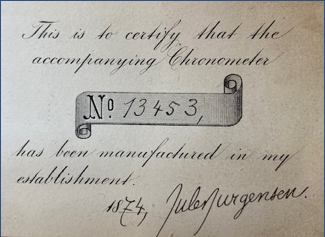 This is to certify that the
accompanying Chronometer
Nº 13453,
has been manufactured in my
establishment.
1874, Jules Jurgensen.